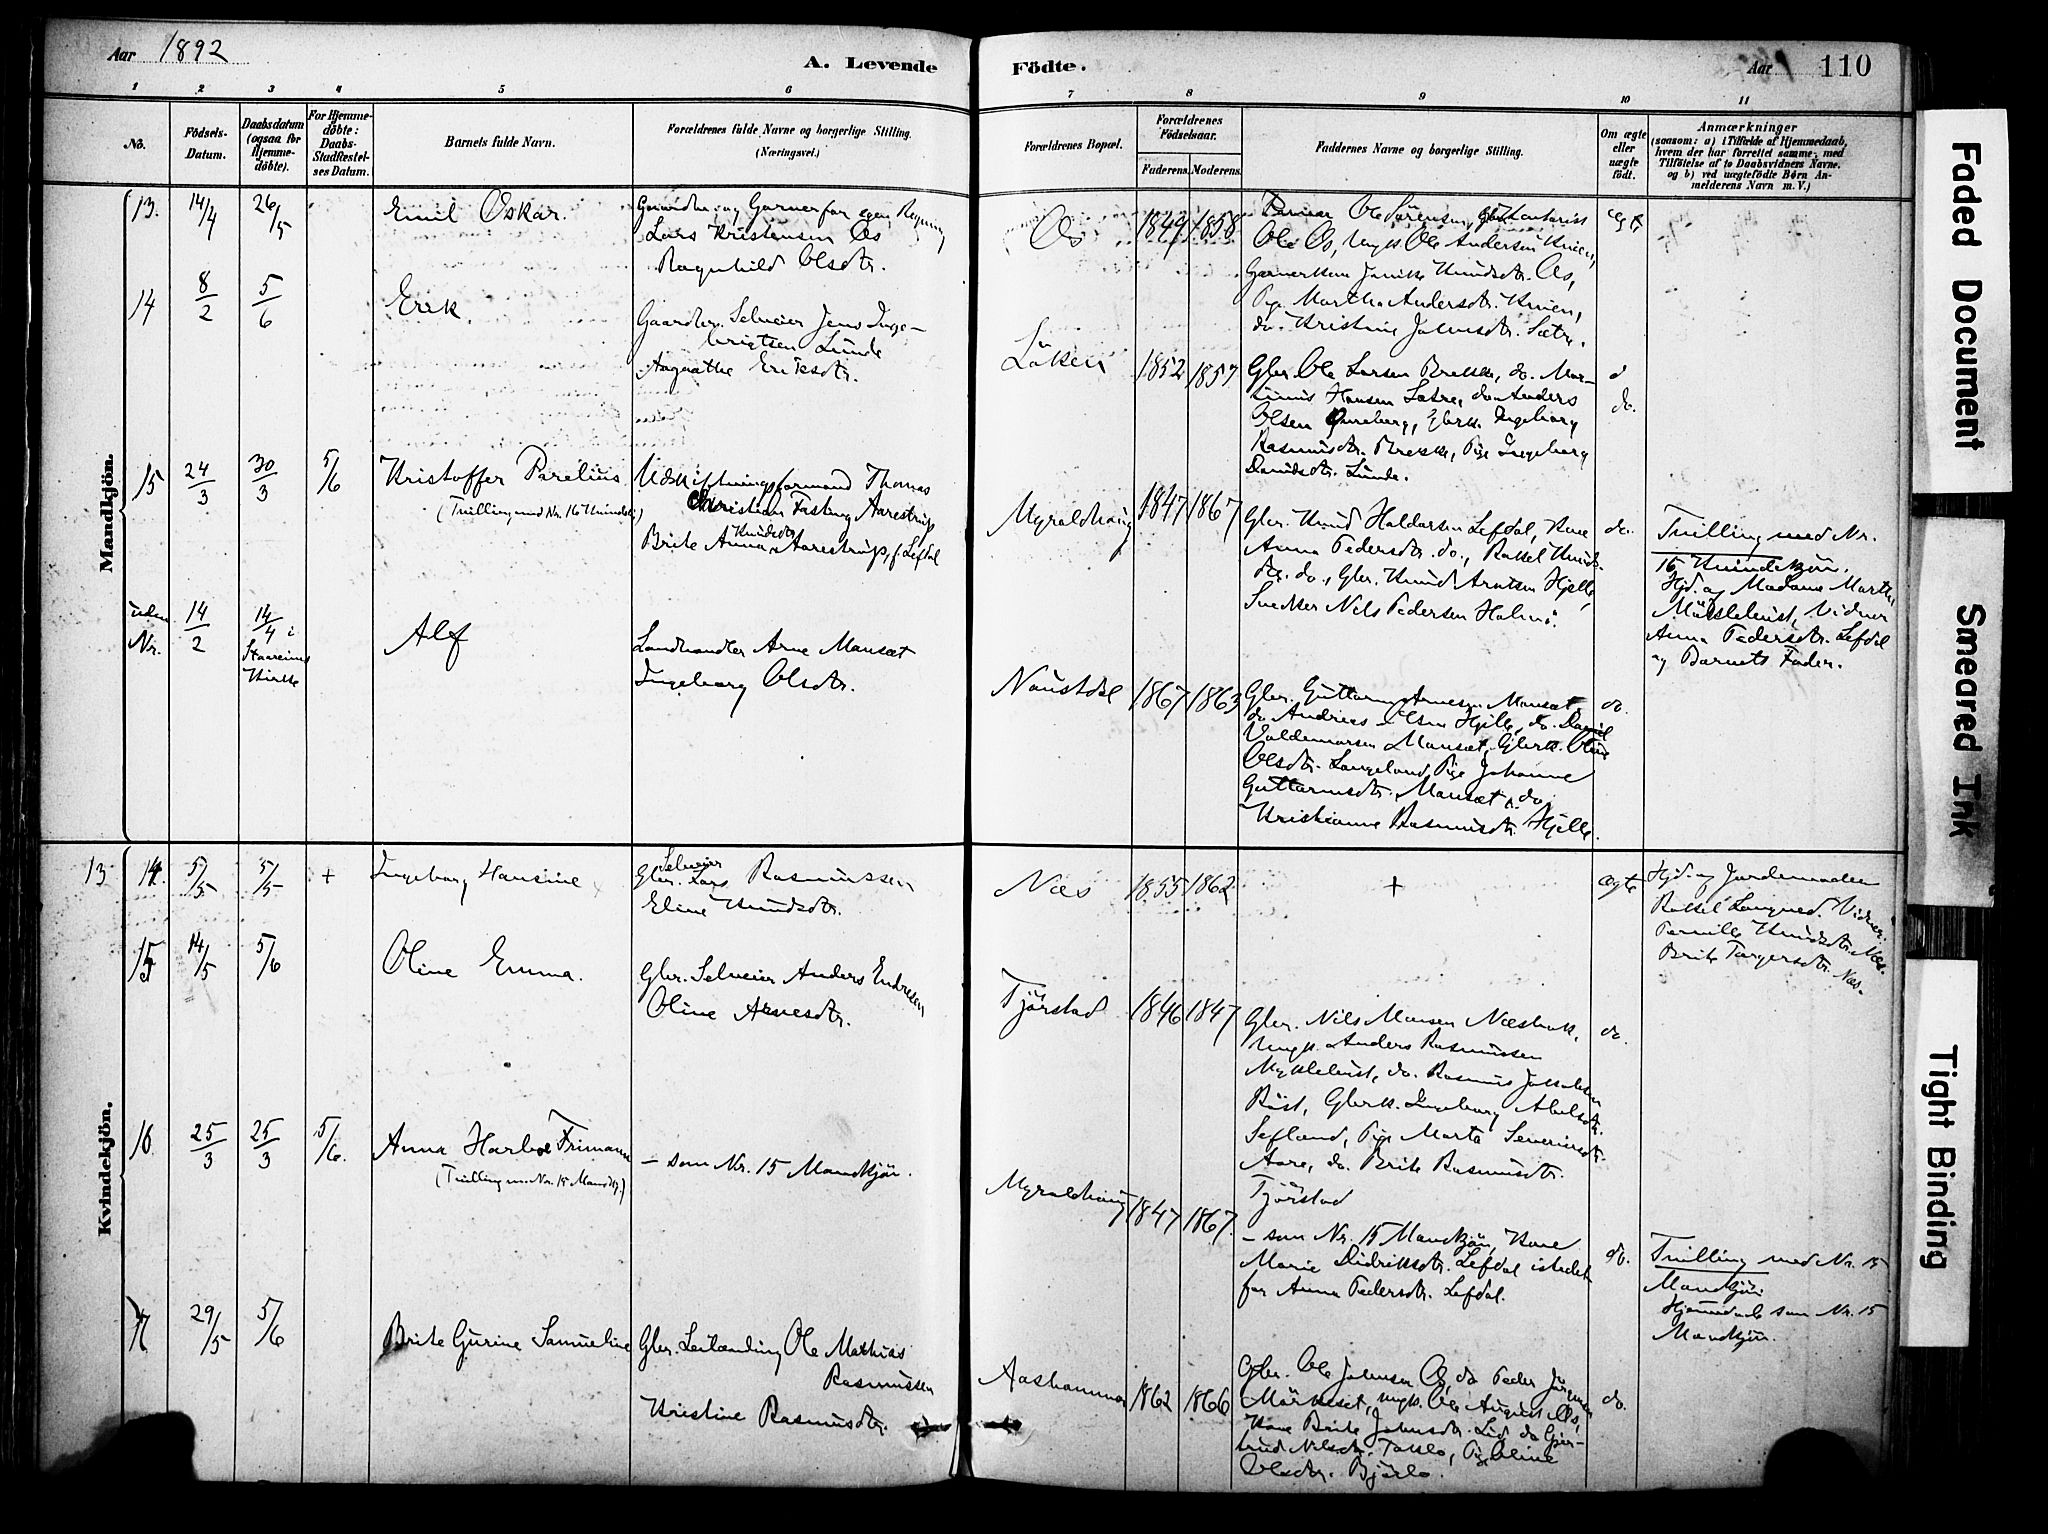 Aar 1892
A. Levende
Födte.
Aar
110
1 2 3 4 5 6 7 8 9 10 11
No.
Födsels-
Datum.
Daabsdatum
(ogsaa for
Hjemme-
døbte).
For Hjemme-
døbte:
Daabs-
Stadfæstel-
ses Datum.
Barnets fulde Navn.
Forældrenes fulde Navne og borgerlige Stilling.
(Næringsvei.)
Forældrenes Bopæl.
Forældrenes
Födselsaar.
Faderens. Moderens.
Faddernes Navne og borgerlige Stilling.
Om ægte
eller
uægte
født.
Anmærkninger
(saasom: a) i Tilfælde af Hjemmedaab,
hvem der har forrettet samme, med
Tilföielse af to Daabsvidners Navne.
og b) ved uægtefödte Börn An-
melderens Navn m. V.)
Mandkjön.
13. 14/4 26/5
Emil Oskar.
Lars Kristensen Os
Ragnhild Olsdtr.
Os
1849 1858
Ole Os, Ungk. Ole Andersen
Pige Martha Andersdtr.
do. Kristine Johnsdtr. Sætre.
14 8/2 5/6
Erik
Gaardbr. Selveier Jens Inge-
brigtsen Lunde
Aagaathe Eriksdtr.
Löken
1852 1857
do.
Gbr. Ole Larsen Brekke, do. Mar-
tinus Hansen Sætre, do. Anders
Olsen
Rasmusdtr. Brekke, Pige Ingeborg
Davidsdtr. Lunde.
15 24/3 30/3 5/6
Kristoffer Parelius
(Tvilling med Nr. 16 Kvindekj.)
Udskiftningsformand Thomas
Christian Fasting Aarestrup
Brite Anna Knudsdtr Aarestrup, f. Lefdal
Myroldhaug
1847 1867
Gbr. Knud Haldorsen Lefdal, Kone
Anna Pedersdtr. do., Rakel Knuds-
dtr. do., Gbr. Knud Arntsen Hjelle,
Snedker Nils Pedersen Holm.
do.
Tvilling med Nr.
16 Kvindekjön.
Hjd. af Madame Marthe
Myklebust, Vidner
Anna Pedersdtr. Lefdal
og Barnets Fader.
uden
Nr.
14/2 14/4 i
Staareims
Kirke
Alf
Landhandler Arne Maurset
Ingeborg Olsdtr.
Naustdal
1867 1863
do.
Gbr. Guttorm Arnesen Maurset,
do. Andreas Olsen Hjelle, do. Daniel
Valdemarsen Maurset, Gbrk. Oline
Olsdtr. Langeland, Pige Johanne
Guttormsdtr. Maurset, do.
Kristianne Rasmusdtr. Hjelle.
Kvindekjön.
13 14. 5/5 5/5 +
Ingeborg Hansine
Gbr. Selveier Lars Rasmussen
Eline Knudsdtr.
Næs
1855 1862
+
ægte
Hjd. af Jordemoder
Rakel Langned. Vidner:
Pernille Knudsdtr. Næs.
Brite Torgersdtr. Næs.
15 14/5 5/6
Oline Emma.
Gbr. Selveier Anders Endresen
Oline Arnesdtr.
Tjörstad
1846 1847
do.
Gbr. Nils Monsen Næsbak,
Ungk. Anders Rasmussen
Myklebust, do. Rasmus Jakobsen
Böst, Gbrk. Ingeborg Abelsdtr.
Sefland, Pige Marta Severinsdtr.
Aare, do. Brite Rasmusdtr.
Tjörstad
16. 25/3 25/3 5/6.
Anna Harboe Frimann
(Tvilling m. Nr. 15 Mandkj.)
— som Nr. 15 Mandkjön.
Myroldhaug
1847 1867.
— som Nr. 15 Mandkjön, Kone
Marie Didriksdtr. Lefdal istedet
for Anna Pedersdtr. Lefdal.
do.
Tvilling med Nr. 15
Mandkjön
Hjemmedøbt som Nr. 15
Mandkjön.
17 29/5 5/6
Brite Gurine Samueline
Gbr. Leilænding Ole Mathias
Rasmussen
Kristine Rasmusdtr.
Aashammar
1862 1866
do.
Gbr. Ole Johnsen Os, do. Peder Jörgensen
Mörkeset, ungk. Ole August Os,
Kone Brite Johnsdtr. Lid, do. Gjer-
trud Nilsdtr. Taklo, Pige Oline
Olsdtr. Björlo.
Faded Document
Smeared Ink
Tight Binding